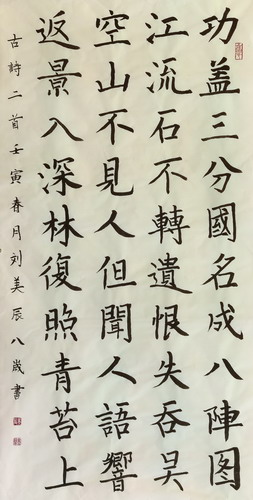 功盖三分國名成八陣图
江流石不轉遺恨失吞吴
空山不見人但聞人語響
返景入深林復照青苔上
古詩二首壬寅春月刘美辰八歲書